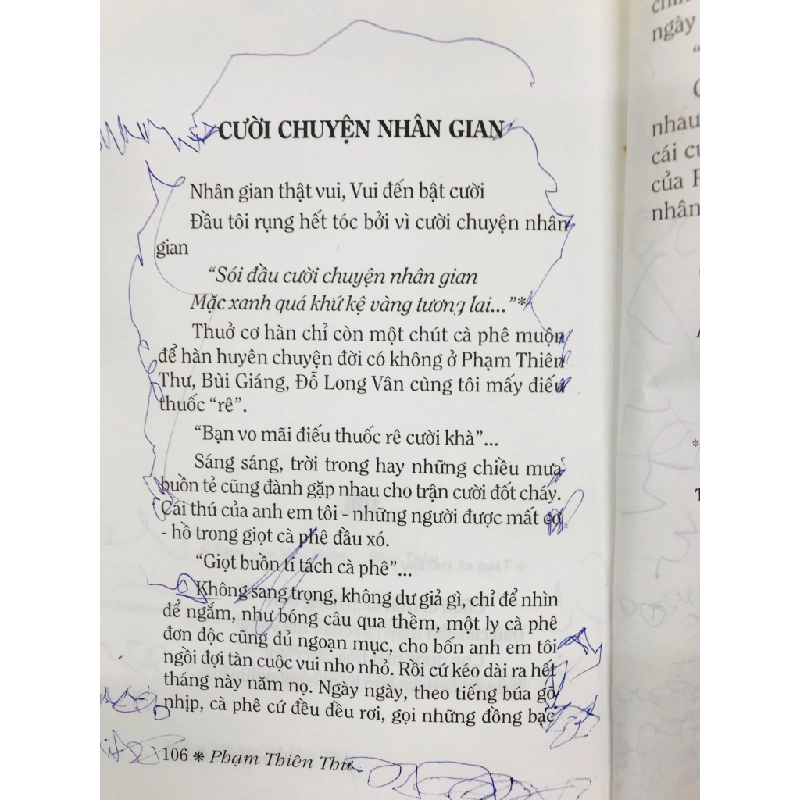 CƯỜI CHUYỆN NHÂN GIAN
Nhân gian thật vui, Vui đến bật cười
Đầu tôi rụng hết tóc bởi vì cười chuyện nhân
gian
“Sói đầu cười chuyện nhân gian
Mặc xanh quá khứ kệ vàng tương lai...”*
Thuở cơ hàn chỉ còn một chút cà phê muộn
để hàn huyên chuyện đời có không ở Phạm Thiên
Thư, Bùi Giáng, Đỗ Long Vân cùng tôi mấy điếu
thuốc “rê”.
“Bạn vo mãi điếu thuốc rê cười khà”...
Sáng sáng, trời trong hay những chiều mưa
buồn tẻ cũng đành gặp nhau cho trận cười đốt cháy.
Cái thú của anh em tôi - những người được mất cơ
- hồ trong giọt cà phê đầu xó.
“Giọt buồn tí tách cà phê”...
Không sang trọng, không dư giả gì, chỉ để nhìn
để ngắm, như bóng câu qua thềm, một ly cà phê
đơn độc cũng đủ ngoạn mục, cho bốn anh em tôi
ngồi đợi tàn cuộc vui nho nhỏ. Rồi cứ kéo dài ra hết
tháng này năm nọ. Ngày ngày, theo tiếng búa gõ
nhịp, cà phê cứ đều đều rơi, gọi những đồng bạc
106 * Phạm Thiên Thư
ngày
nhau
cái
của
nhân